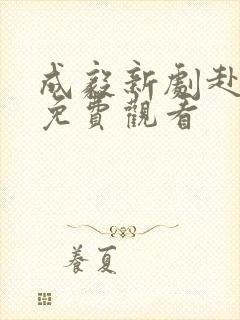 成毅新劇赴
免費觀看
養夏